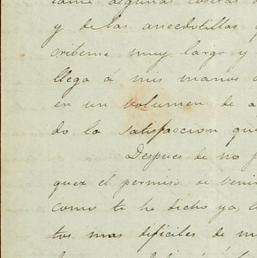 algunas
y de las anecdotillas
cribeme muy largo y
llega á mis manos
en un volumen de a
do la satisfaccion que
Despues de no p
quez el permiso se veni
como te he dicho ya,
tos mas dificiles de m